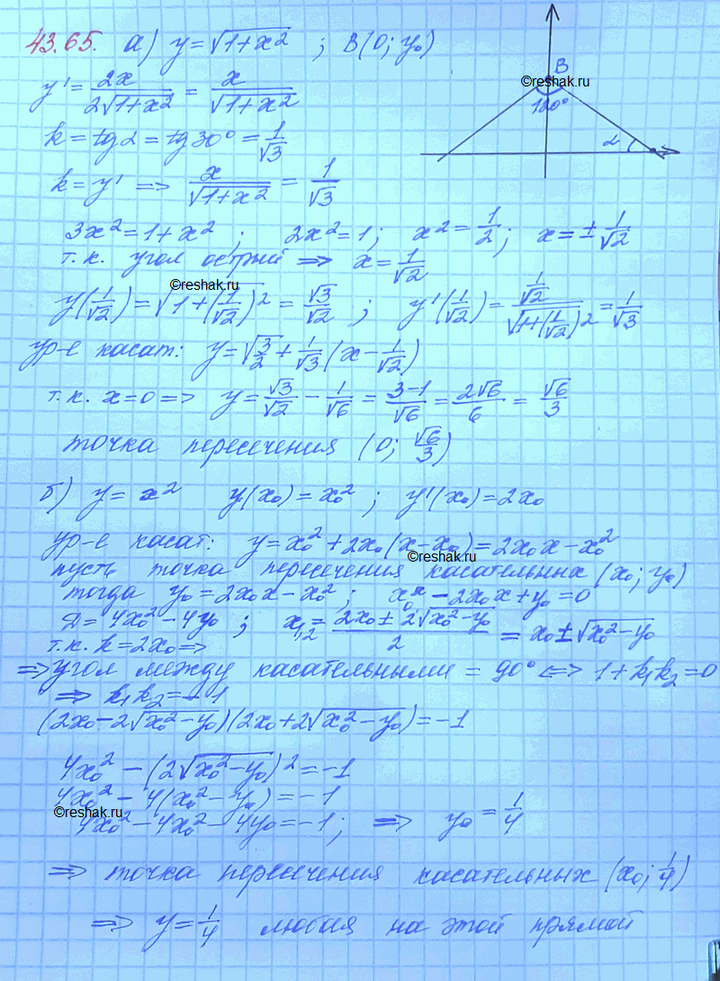 43.65. а) y = √(1+x²) ; B(0; y₀)
y' = 2x/(2√(1+x²)) = x/√(1+x²)
B
120°
α
k = tgα = tg30° = 1/√3
k = y' ⇒ x/√(1+x²) = 1/√3
3x² = 1+x² ; 2x² = 1; x² = 1/2; x = ± 1/√2
т.к. угол острый ⇒ x = 1/√2
y(1/√2) = √(1+(1/√2)²) = √3/√2 ; y'(1/√2) = (1/√2)/√(1+(1/√2)²) = 1/√3
ур-е касат: y = √(3/2) + 1/√3 (x - 1/√2)
т.к. x=0 ⇒ y = √3/√2 - 1/√6 = (3-1)/√6 = 2√6/6 = √6/3
точка пересечения (0; √6/3)
б) y = x² y(x₀) = x₀² ; y'(x₀) = 2x₀
ур-е касат: y = x₀² + 2x₀(x-x₀) = 2x₀x - x₀²
пусть точка пересечения касательных (x₀; y₀)
тогда y₀ = 2x₀x - x₀² ; - 2x₀x + y₀ = 0
Д = 4x₀² - 4y₀ ; x₁,₂ = (2x₀ ± 2√(x₀²-y₀))/2 = x₀ ± √(x₀²-y₀)
т.к. k = 2x₀ ⇒
⇒ угол между касательными = 90° ⇔ 1+k₁k₂=0
⇒ k₁k₂ = -1
(2x₀ - 2√(x₀²-y₀))(2x₀ + 2√(x₀²-y₀)) = -1
4x₀² - (2√(x₀²-y₀))² = -1
4x₀² - 4(x₀² - y₀) = -1
4x₀² - 4x₀² - 4y₀ = -1; ⇒ y₀ = 1/4
⇒ точка пересечения касательных (x₀; 1/4)
⇒ y = 1/4 любая на этой прямой
©reshak.ru
©reshak.ru
©reshak.ru
©reshak.ru